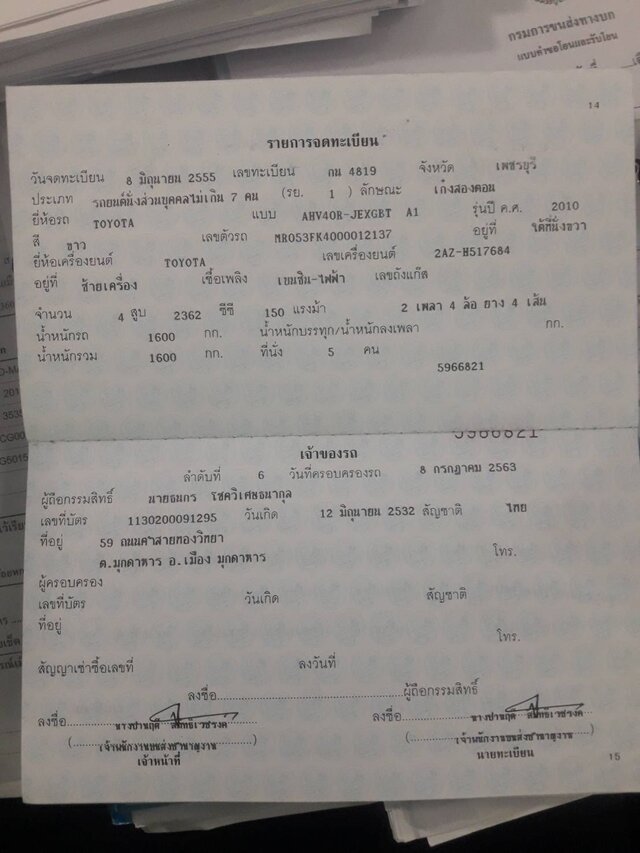 กรมการขนส่งทางบก
แบบคำขอโอนและรับโอน
14
รายการจดทะเบียน
วันจดทะเบียน 8 มิถุนายน 2555 เลขทะเบียน กน 4819 จังหวัด เพชรบุรี
ประเภท รถยนต์นั่งส่วนบุคคลไม่เกิน 7 คน (รย. 1 ) ลักษณะ เก๋งสองตอน
ยี่ห้อรถ TOYOTA แบบ AHV40R-JEXGBT A1 รุ่นปี ค.ศ. 2010
สี ขาว เลขตัวรถ MR053FK4000012137 อยู่ที่ ใต้ที่นั่งขวา
ยี่ห้อเครื่องยนต์ TOYOTA เลขเครื่องยนต์ 2AZ-H517684
อยู่ที่ ซ้ายเครื่อง เชื้อเพลิง เบนซิน-ไฟฟ้า เลขถังแก๊ส
จำนวน 4 สูบ 2362 ซีซี 150 แรงม้า 2 เพลา 4 ล้อ ยาง 4 เส้น
น้ำหนักรถ 1600 กก. น้ำหนักบรรทุก/น้ำหนักลงเพลา กก.
น้ำหนักรวม 1600 กก. ที่นั่ง 5 คน
5966821
5966821
เจ้าของรถ
ลำดับที่ 6 วันที่ครอบครองรถ 8 กรกฎาคม 2563
ผู้ถือกรรมสิทธิ์ นายธนกร โชควิเศษธนากุล
เลขที่บัตร 1130200091295 วันเกิด 12 มิถุนายน 2532 สัญชาติ ไทย
ที่อยู่ 59 ถนนศาสายทองวิทยา
ต.มุกดาหาร อ.เมือง มุกดาหาร โทร.
ผู้ครอบครอง
เลขที่บัตร วันเกิด สัญชาติ
ที่อยู่
โทร.
สัญญาเช่าซื้อเลขที่ ลงวันที่
ลงชื่อ ผู้ถือกรรมสิทธิ์
ลงชื่อ ลงชื่อ
(เจ้าพนักงานขนส่งชำนาญงาน) (เจ้าพนักงานขนส่งชำนาญงาน)
เจ้าหน้าที่ นายทะเบียน
15